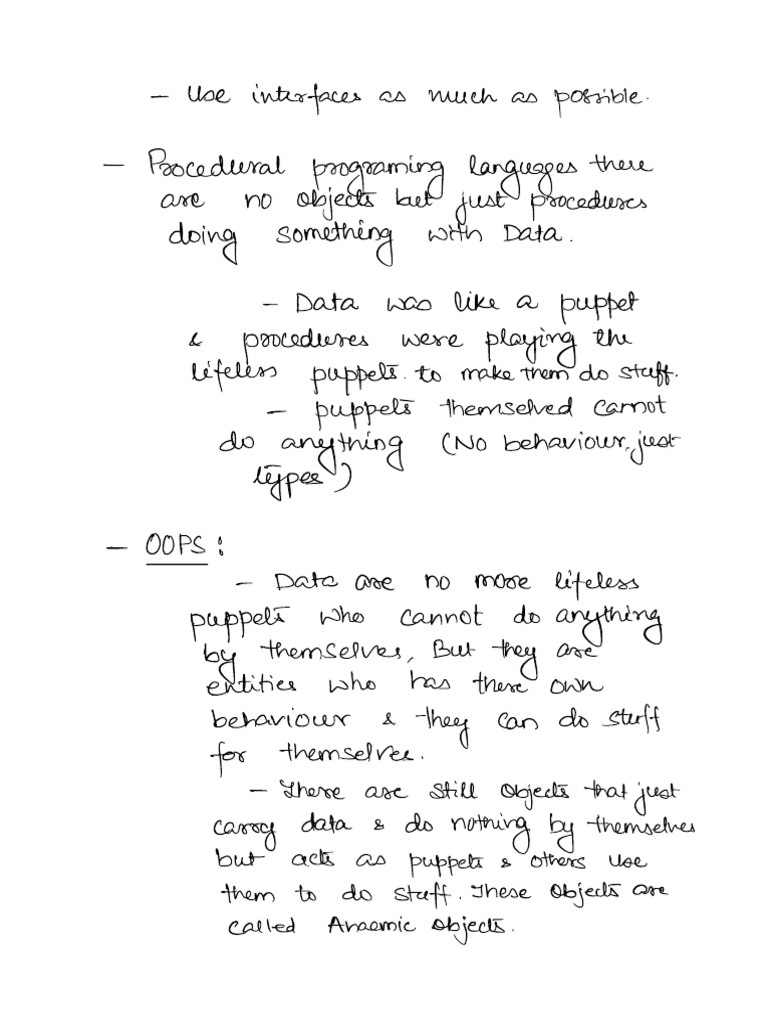 - Use interfaces as much as possible.
- Procedural programing languages there
are no objects but just procedures
doing something with Data.
- Data was like a puppet
& procedures were playing the
lifeless puppets to make them do stuff.
- puppets themselved cannot
do anything (No behaviour, just
types)
- OOPS:
- Data are no more lifeless
puppets who cannot do anything
by themselves, But they are
entities who has there own
behaviour & they can do stuff
for themselves.
- There are still objects that just
carry data & do nothing by themselves
but acts as puppets & others use
them to do stuff. These Objects are
called Anaemic Objects.